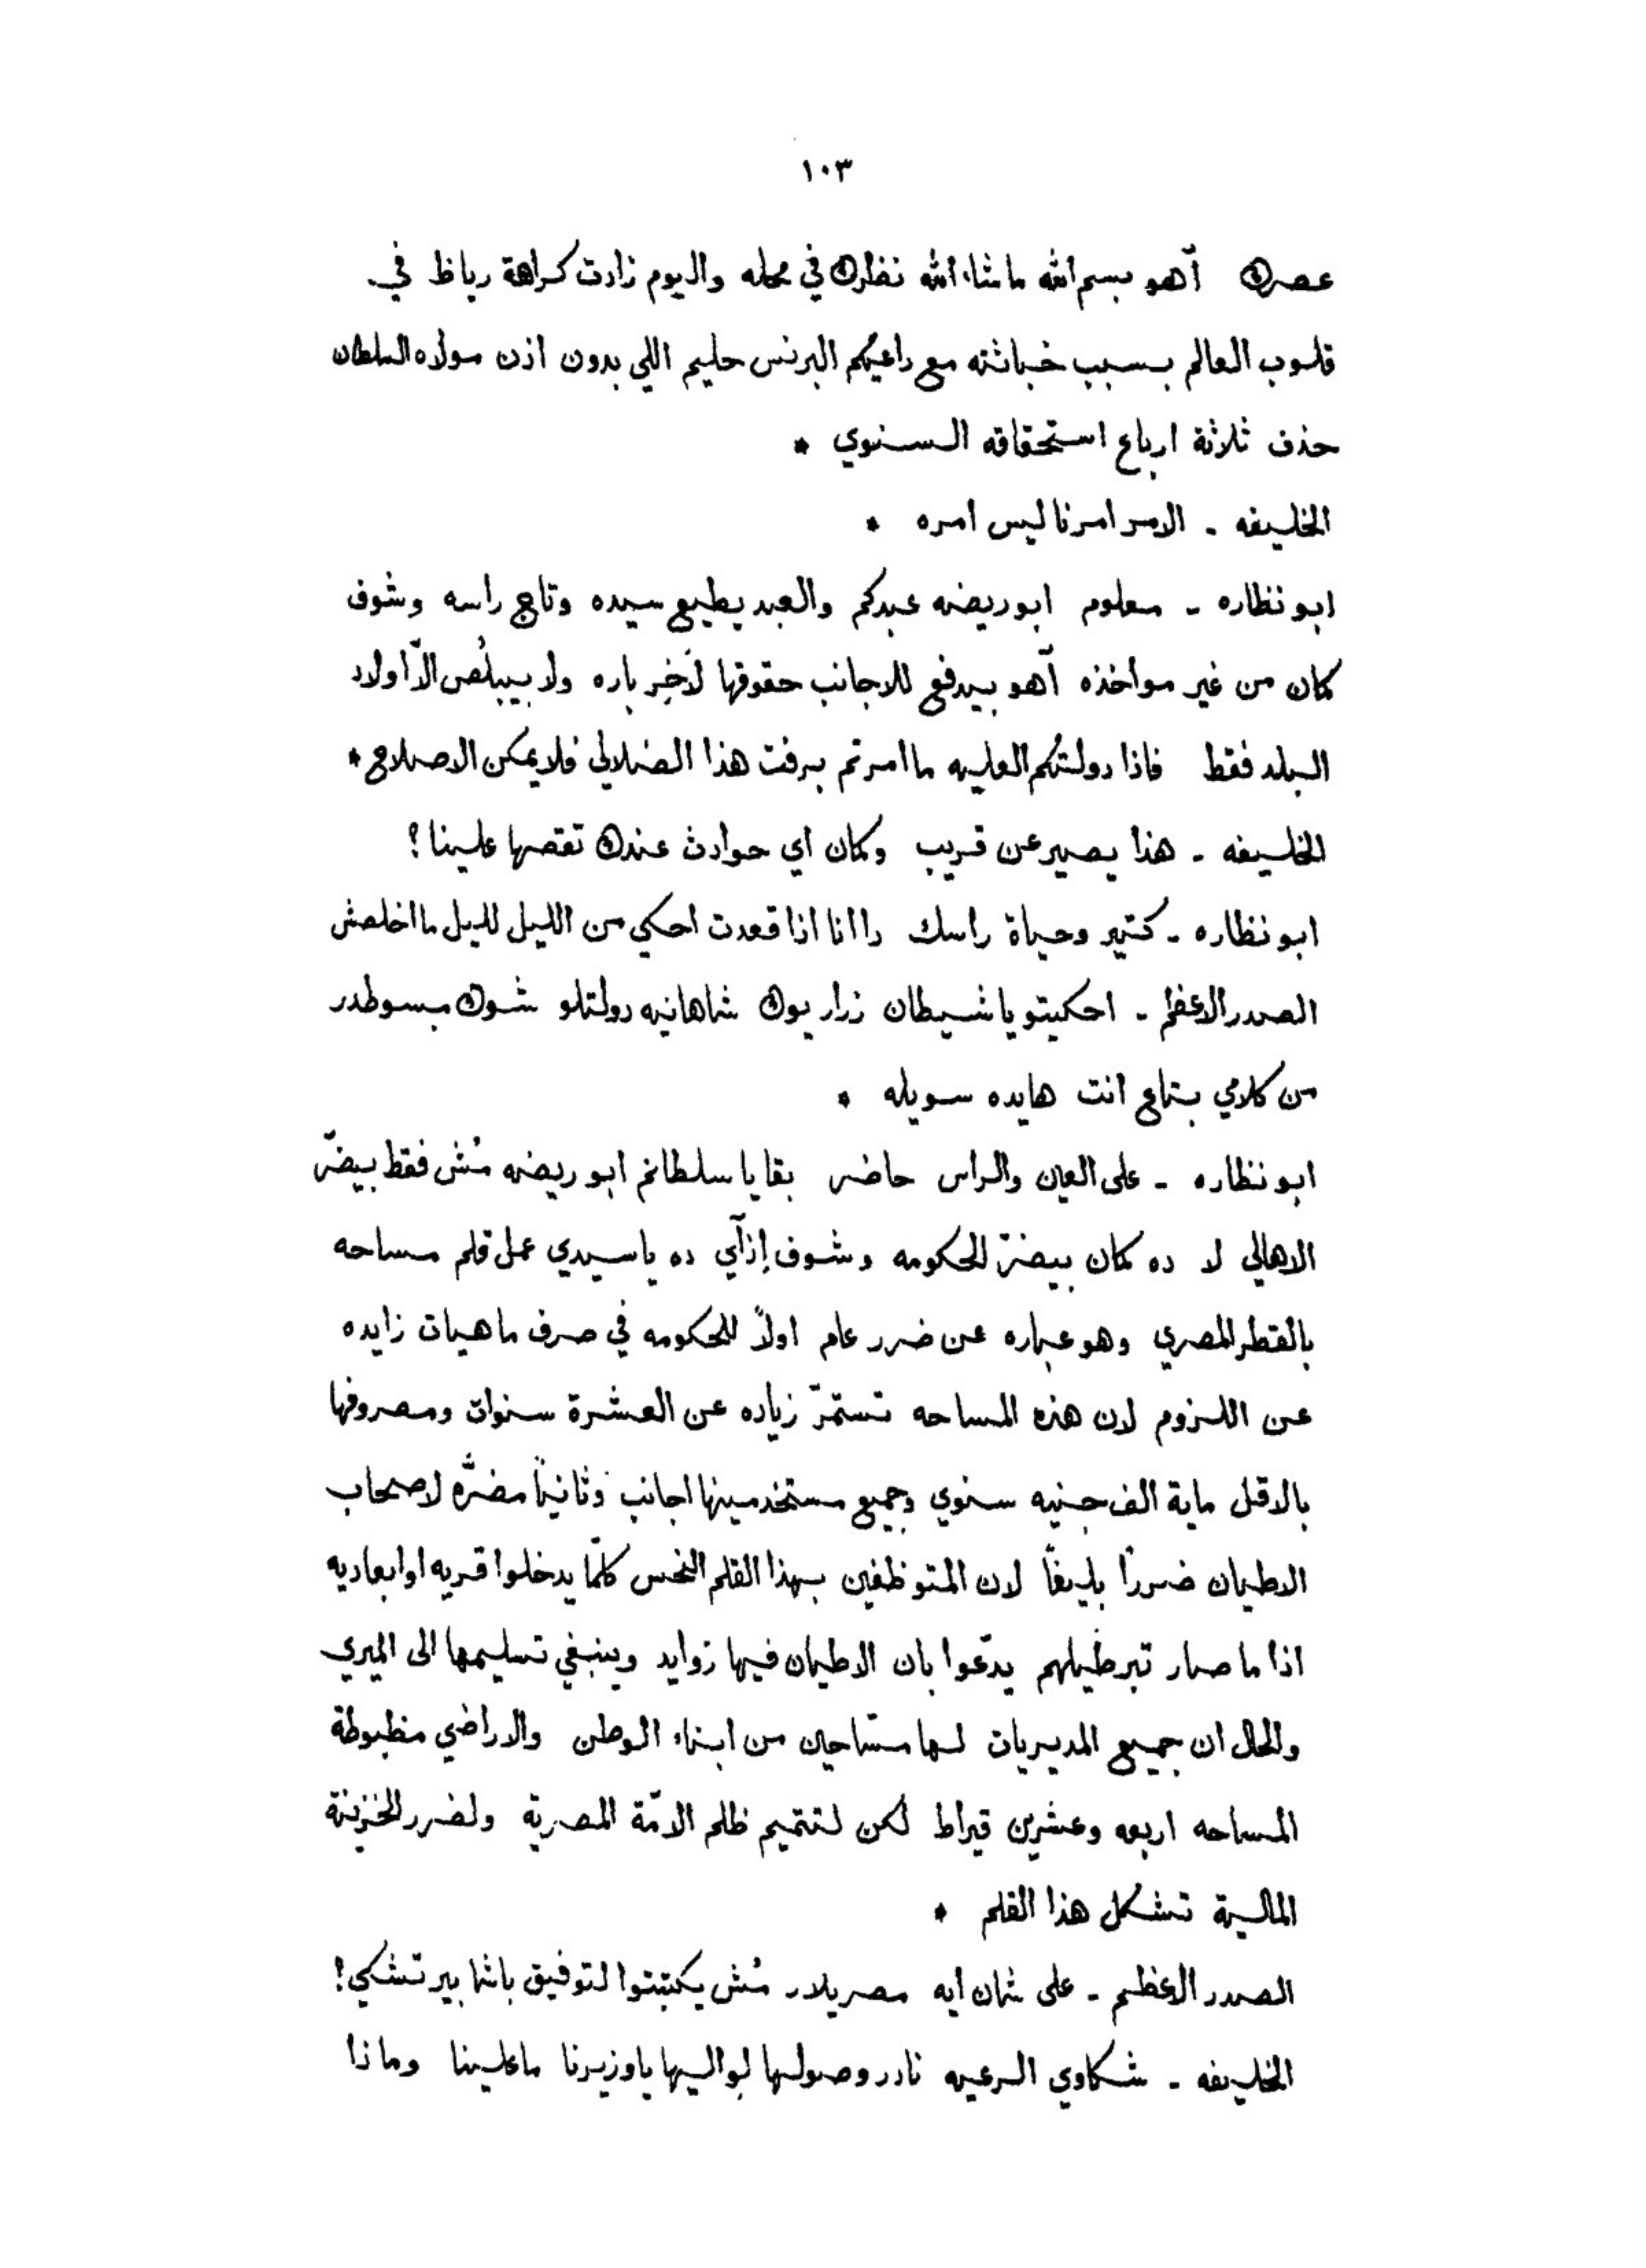 ١٠٣
عصرك آهو بسم الله ماشاء الله نظرك في محله واليوم زادت كراهة رياظ في
قلوب العالم بسبب خباثته مع داعيكم البرنس حليم اللي بدون اذن مولاه السلطان
حذف ثلاثة ارباع استحقاقه السنوي *
الخليفه - الامر امرنا ليس امره *
ابو نظاره - معلوم ابو ريضه عبدكم والعبد يطيع سيده وتاج راسه وشوف
كمان من غير مواخذه آهو بيدفع للاجانب حقوقها لآخر باره ولا بيبلُص الّا اولاد
البلد فقط فاذا دولتكم العليه ما امرتم برفت هذا الضلالي فلا يمكن الاصلاح *
الخليفه - هذا يصير عن قريب وكمان اي حوادث عندك تقصها علينا؟
ابو نظاره - كتير وحياة راسك دا انا اذا قعدت احكي من الليل لليل ما اخلصش
الصدر الاعظم - احكيتو يا شيطان زرار يوك شاهانيه دولتلو شوك مبسوطدر
من كلامي بتاع انت هايده سويله *
ابو نظاره - على العين والراس حاضر بقا يا سلطانم ابو ريضه مُش فقط بيضّر
الاهالي لا ده كمان بيضرّ الحكومه وشوف إزآي ده يا سيدي عمل قلم مساحه
بالقطر المصري وهو عباره عن ضرر عام اولاً للحكومه في صرف ماهيات زايده
عن اللزوم لان هذه المساحه تستمرّ زياده عن العشرة سنوات ومصروفها
بالاقل ماية الف جنيه سنوي وجميع مستخدمينها اجانب وثانياً مضرَّه لاصحاب
الاطيان ضررًا بليغًا لان المتوظفين بهذا القلم النحس كلّما يدخلوا قريه او ابعاديه
اذا ما صار تبرطيلهم يدّعوا بان الاطيان فيها زوايد وينبغي تسليمها الى الميري
والحال ان جميع المديريات لها مسّاحين من ابناء الوطن والاراضي مظبوطة
المساحه اربعه وعشرين قيراط لكن لتتميم ظلم الامّة المصرية ولضرر الخزينة
المالية تشكل هذا القلم *
الصدر الاعظم - على شان ايه مصريلار مُش يكتبتوا لتوفيق باشا بير تشكي!
الخليفه - شكاوي الرعيه نادر وصولها لواليها يا وزيرنا ما علينا وماذا